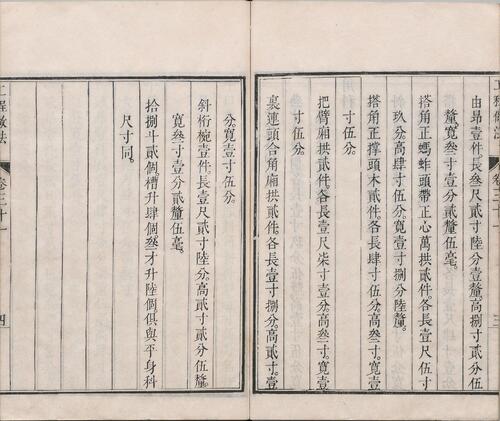 由昂壹件長叁尺陸分壹釐高捌寸貳分伍
釐寬叁寸壹分貳釐伍毫
搭角正螞蚱頭帶正心萬拱貳件各長壹尺伍寸
玖分高肆寸伍分寬壹寸捌分陸釐
搭角正撐頭木貳件各長肆寸伍分高叁寸寬壹
寸伍分
把臂廂拱貳件各長壹尺柒寸壹分高叁寸寬壹
寸伍分
裏連頭合角廂拱貳件各長壹寸捌分高貳寸壹
三
分寬壹寸伍分
斜桁椀壹件長壹尺貳寸陸分高貳寸貳分伍釐
寬叁寸壹分貳釐伍毫
拾捌斗貳個槽升肆個叁才升陸個俱與平身科
尺寸同
工程做法
卷三十一
四